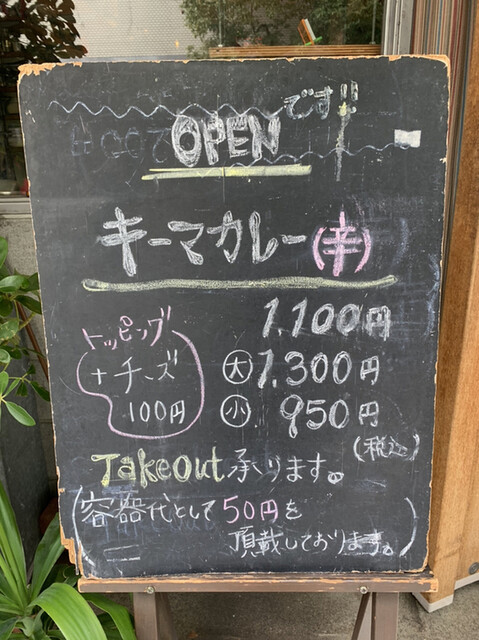 OPENです!!
キーマカレー(辛)
1,100円
トッピング
+チーズ
100円
大 1,300円
小 950円
(税込)
Takeout承ります。
(容器代として50円を
頂戴しております。)